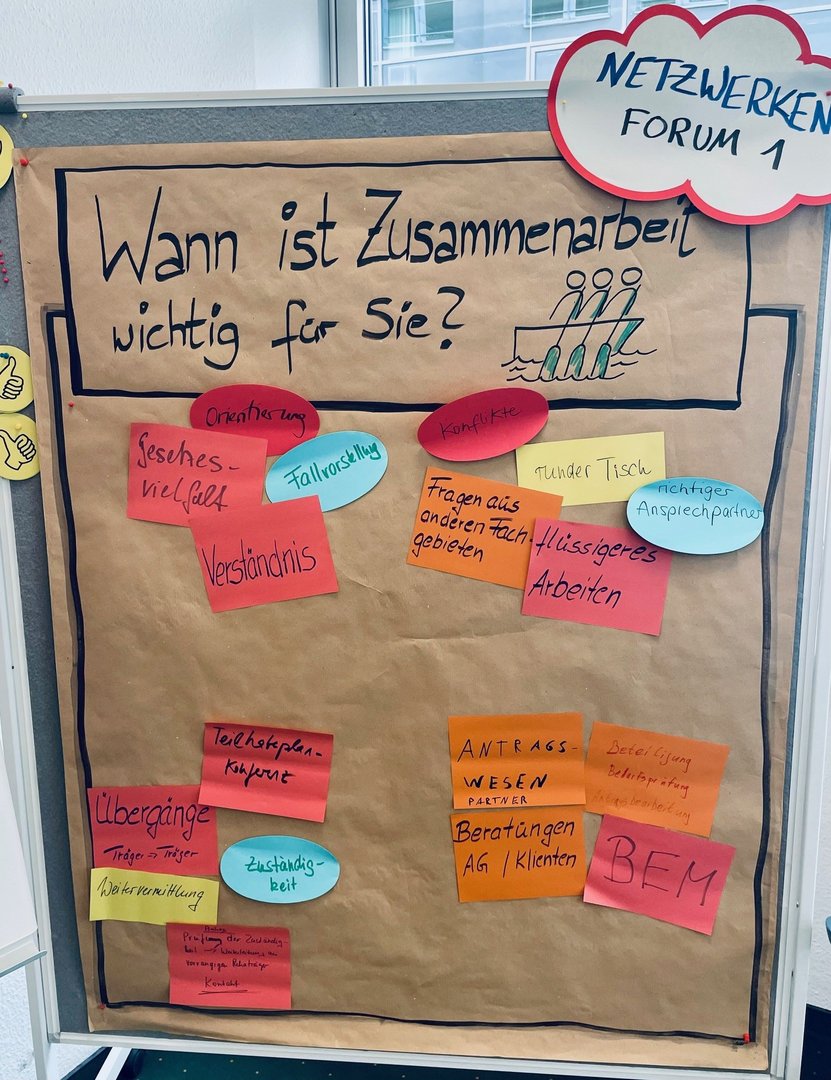 NETZWERKEN
FORUM 1
Wann ist Zusammenarbeit
wichtig für Sie?
Orientierung
Gesetzes-
vielfalt
Fallvorstellung
Verständnis
Konflikte
runder Tisch
richtiger
Ansprechpartner
Fragen aus
anderen Fach-
gebieten
flüssigeres
Arbeiten
Teilhabeplan-
Konferenz
Übergänge
Träger → Träger
Weitervermittlung
Zuständig-
keit
Prüfung der Zuständig-
keit →
vorrangige
Kontakt
ANTRAGS-
WESEN
PARTNER
Beteiligung
Bedarfsprüfung
Antragsbearbeitung
Beratungen
AG / Klienten
BEM